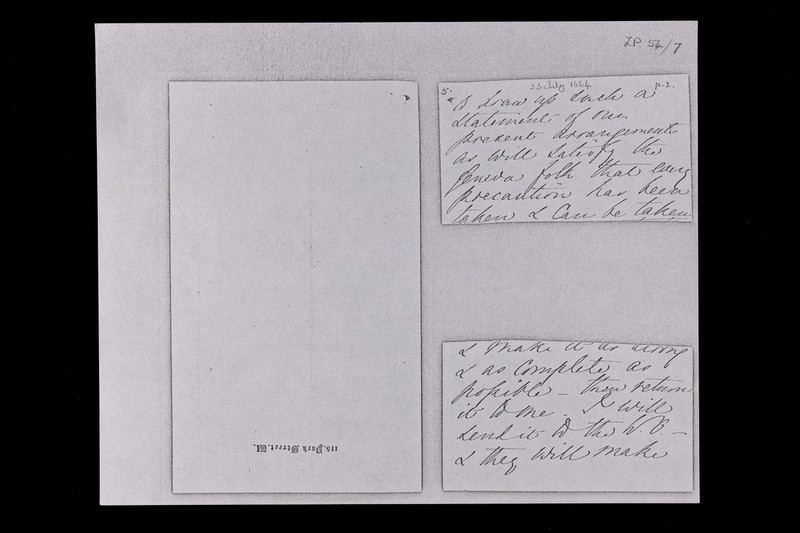 LP. 54/7
115. Park Street. W.
23 July 1864
p. 2.
5.
to draw up such a
statement of our
present arrangements
as will satisfy the
Geneva folk that every
precaution has been
taken & can be taken
& make it as strong
& as complete as
possible – then return
it to me. I will
send it to the W.O. –
& they will make